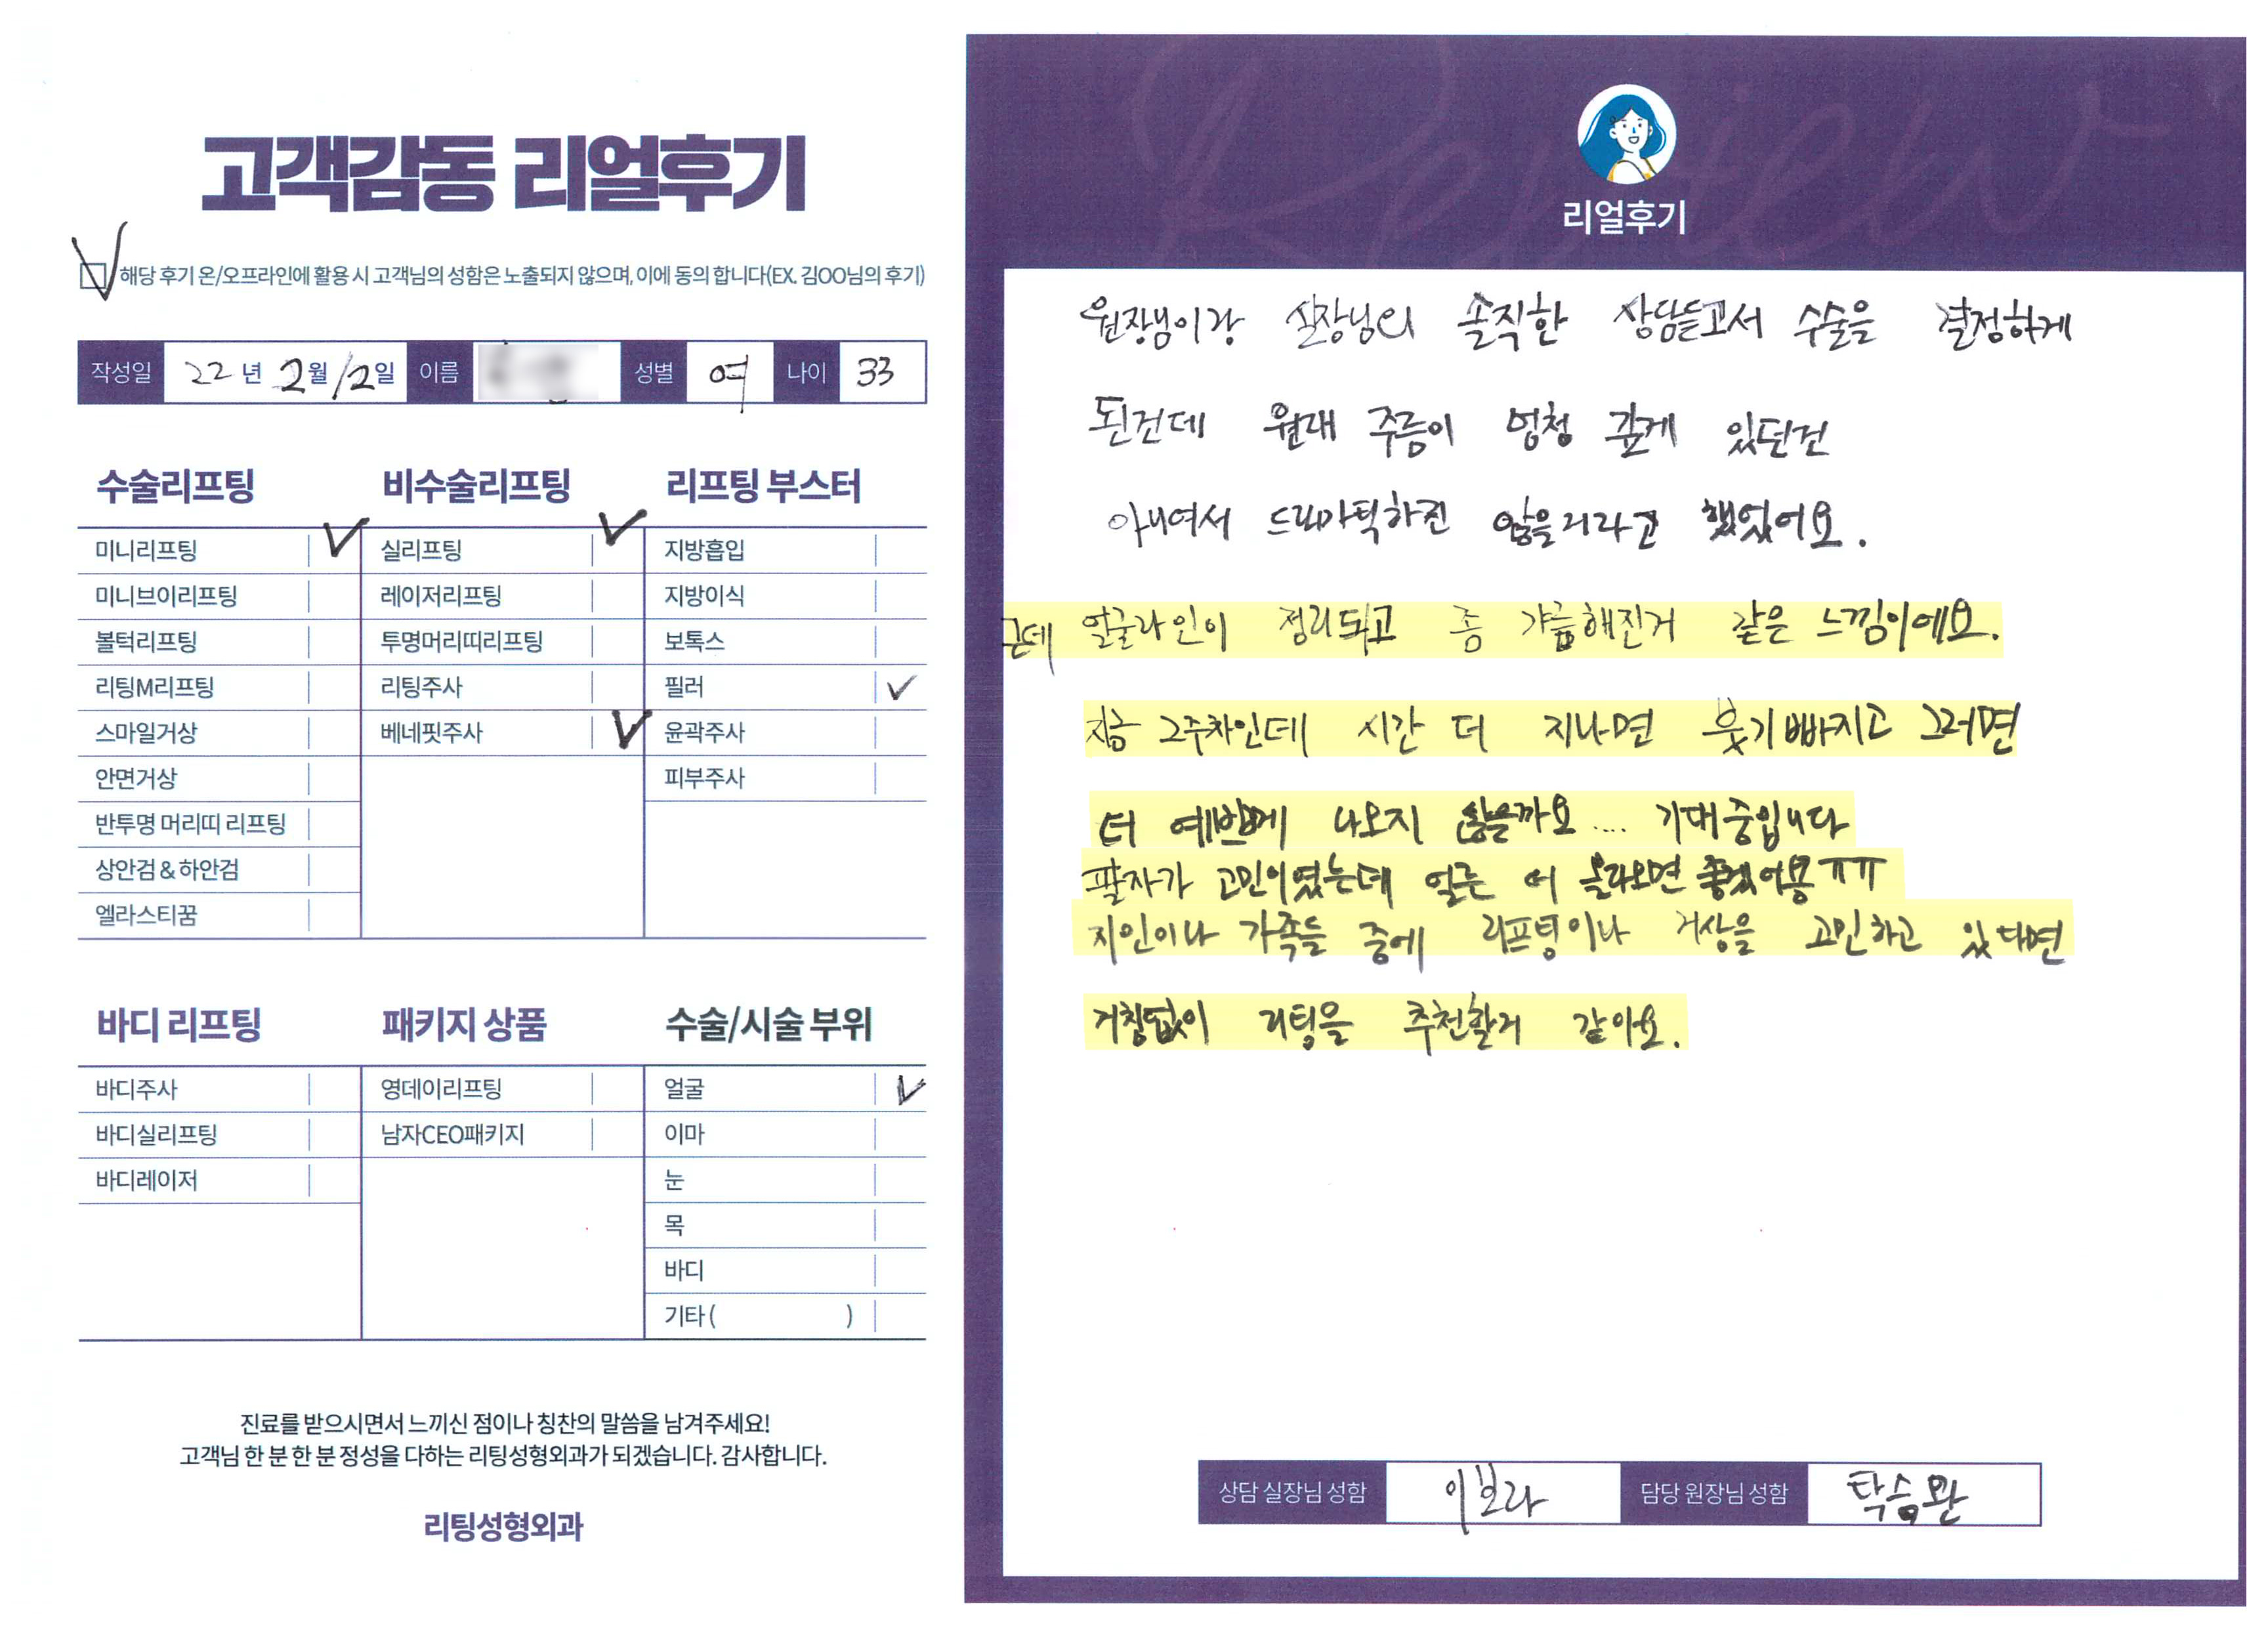 고객감동 리얼후기
해당 후기 온/오프라인에 활용 시 고객님의 성함은 노출되지 않으며, 이에 동의 합니다(EX. 김OO님의 후기)
작성일 22년 2월 12일 이름 성별 여 나이 33
수술리프팅
미니리프팅 ✓
미니브이리프팅
볼턱리프팅
리팅M리프팅
스마일거상
안면거상
반투명 머리띠 리프팅
상안검 & 하안검
엘라스티꿈
비수술리프팅
실리프팅 ✓
레이저리프팅
투명머리띠리프팅
리팅주사
베네핏주사 ✓
리프팅 부스터
지방흡입
지방이식
보톡스
필러 ✓
윤곽주사
피부주사
바디 리프팅
바디주사
바디실리프팅
바디레이저
패키지 상품
영데이리프팅
남자CEO패키지
수술/시술 부위
얼굴 ✓
이마
눈
목
바디
기타 ( )
진료를 받으시면서 느끼신 점이나 칭찬의 말씀을 남겨주세요!
고객님 한 분 한 분 정성을 다하는 리팅성형외과가 되겠습니다. 감사합니다.
리팅성형외과
Review
리얼후기
원장님이랑 실장님의 솔직한 상담듣고서 수술을 결정하게
된건데 원래 주름이 엄청 깊게 있던건
아니여서 드라마틱하진 않을거라고 했었어요.
근데 얼굴라인이 정리되고 좀 갸름해진거 같은 느낌이에요.
지금 2주차인데 시간 더 지나면 붓기 빠지고 그러면
더 예쁘게 나오지 않을까요.... 기대중입니다
팔자가 고민이였는데 얼른 더 올라오면 좋겠어용ㅠㅠ
지인이나 가족들 중에 리프팅이나 거상을 고민하고 있다면
거침없이 리팅을 추천할거 같아요.
상담 실장님 성함 이보라 담당 원장님 성함 탁승완